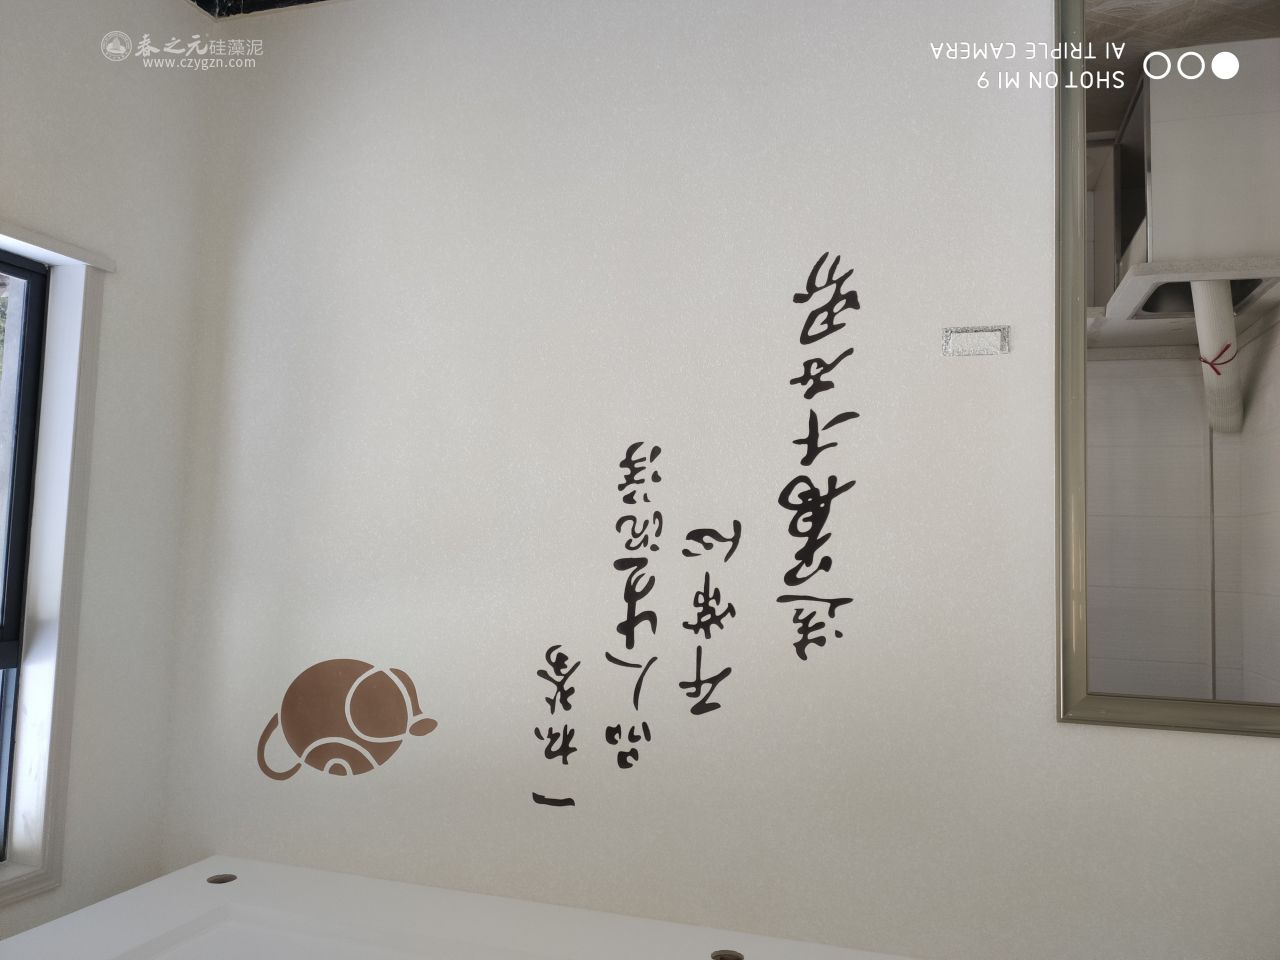 春之元硅藻泥
www.czygzn.com
SHOT ON MI 9
AI TRIPLE CAMERA
一杯茶
品人生沉浮
平常心
造萬千世界